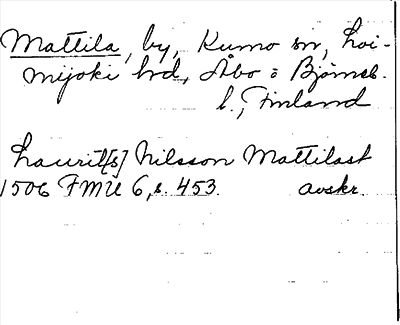 Mattila, by, Kumo sn, Loi-
mijoki hd, Åbo o Björneb.
l., Finland
Laurit[s] Nilsson Mattilast
1506 FMU 6, s. 453. avskr.